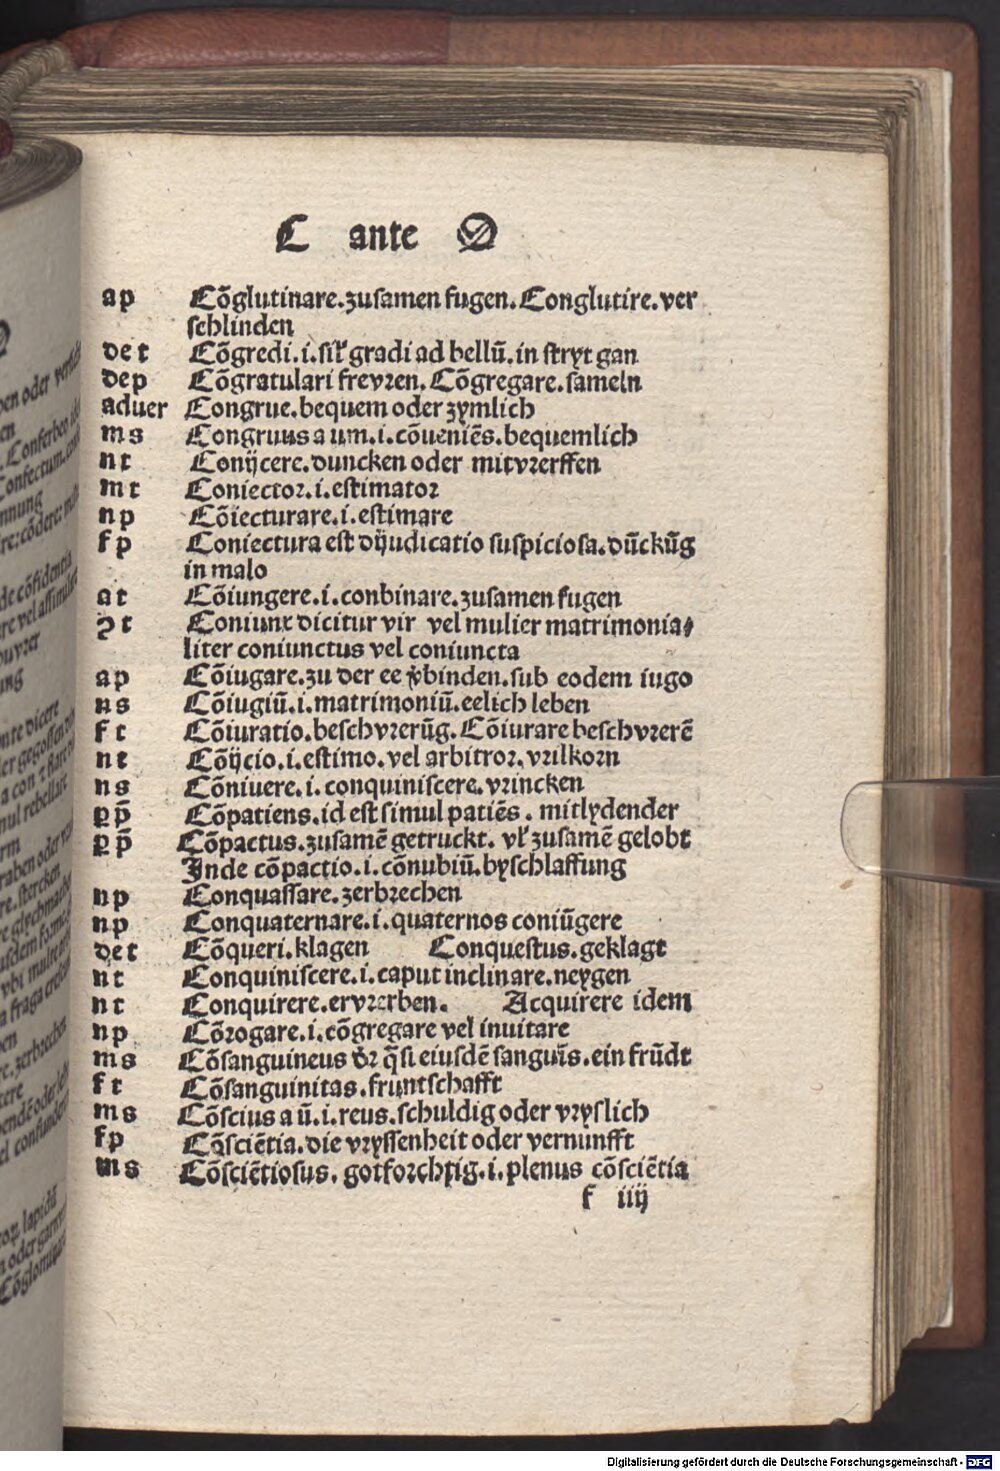 C ante O
ap Cõglutinare.zusamen fugen.Conglutire.ver
schlinden
det Cõgredi.i.sil̛ gradi ad bellũ.in stryt gan
dep Cõgratulari frevꝛen.Cõgregare.sameln
aduer Congrue.bequem oder zymlich
ms Congruus a um.i.cõueniẽs.bequemlich
nt Conijcere.duncken oder mitvꝛerffen
mt Coniectoꝛ.i.estimatoꝛ
np Cõiecturare.i.estimare
fp Coniectura est dijudicatio suspiciosa.dũckũg
in malo
at Cõiungere.i.conbinare.zusamen fugen
ꝯt Coniunx dicitur vir vel mulier matrimonia⸗
liter coniunctus vel coniuncta
ap Cõiugare.zu der ee v̛binden.sub eodem iugo
ns Cõiugiũ.i.matrimoniũ.eelich leben
ft Cõiuratio.beschvꝛerũg.Cõiurare beschvꝛerẽ
nt Cõijcio.i.estimo.vel arbitroꝛ.vꝛilkoꝛn
ns Cõniuere.i.conquiniscere.vꝛincken
ꝑp̄ Cõpatiens.id est simul patiẽs. mitlydender
ꝑp̄ Cõpactus.zusamẽ getruckt. vl̛ zusamẽ gelobt
Inde cõpactio.i.cõnubiũ.byschlaffung
np Conquassare.zerbꝛechen
np Conquaternare.i.quaternos coniũgere
det Cõqueri.klagen Conquestus.geklagt
nt Conquiniscere.i.caput inclinare.neygen
nt Conquirere.ervꝛerben. Acquirere idem
np Cõꝛogare.i.cõgregare vel inuitare
ms Cõsanguineus d̛ꝛ q̃si eiusdẽ sanguĩs.ein frũdt
ft Cõsanguinitas.fruntschafft
ms Cõscius a ũ.i.reus.schuldig oder vꝛyslich
fp Cõsciẽtia.die vꝛyssenheit oder vernunfft
ms Cõsciẽtiosus. gotfoꝛchtig.i.plenus cõsciẽtia
f iiij
Digitalisierung gefördert durch die Deutsche Forschungsgemeinschaft - DFG